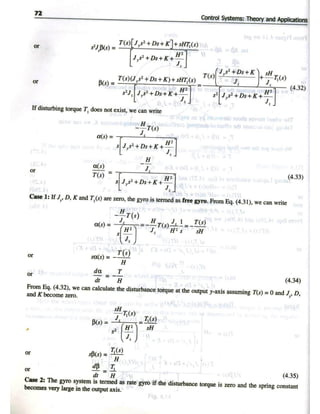 72
Control Systems: Theory and Applications
or s²J_zβ(s) = T(s)[J_y s² + Ds + K] + sHT_i(s) / [J_y s² + Ds + K + H²/J_z]
or β(s) = T(s)(J_y s² + Ds + K) + sHT_i(s) / s²J_z[J_y s² + Ds + K + H²/J_z] = T(s)[J_y s² + Ds + K / J_z] + sH/J_z T_i(s) / s²[J_y s² + Ds + K + H²/J_z] (4.32)
If disturbing torque T_i does not exist, we can write
α(s) = H/J_z T(s) / s[J_y s² + Ds + K + H²/J_z]
or α(s)/T(s) = H/J_z / s[J_y s² + Ds + K + H²/J_z] (4.33)
Case 1: If J_y, D, K and T_i(s) are zero, the gyro is termed as free gyro. From Eq. (4.31), we can write
α(s) = H/J_z T(s) / s(H²/J_z) = H/J_z T(s) J_z/H² 1/s = T(s)/sH
or sα(s) = T(s)/H
or dα/dt = T/H (4.34)
From Eq. (4.32), we can calculate the disturbance torque at the output y-axis assuming T(s) = 0 and J_y, D,
and K become zero.
β(s) = sH/J_z T_i(s) / s²(H²/J_z) = T_i(s)/sH
or sβ(s) = T_i(s)/H
or dβ/dt = T_i/H (4.35)
Case 2: The gyro system is termed as rate gyro if the disturbance torque is zero and the spring constant
becomes very large in the output axis.